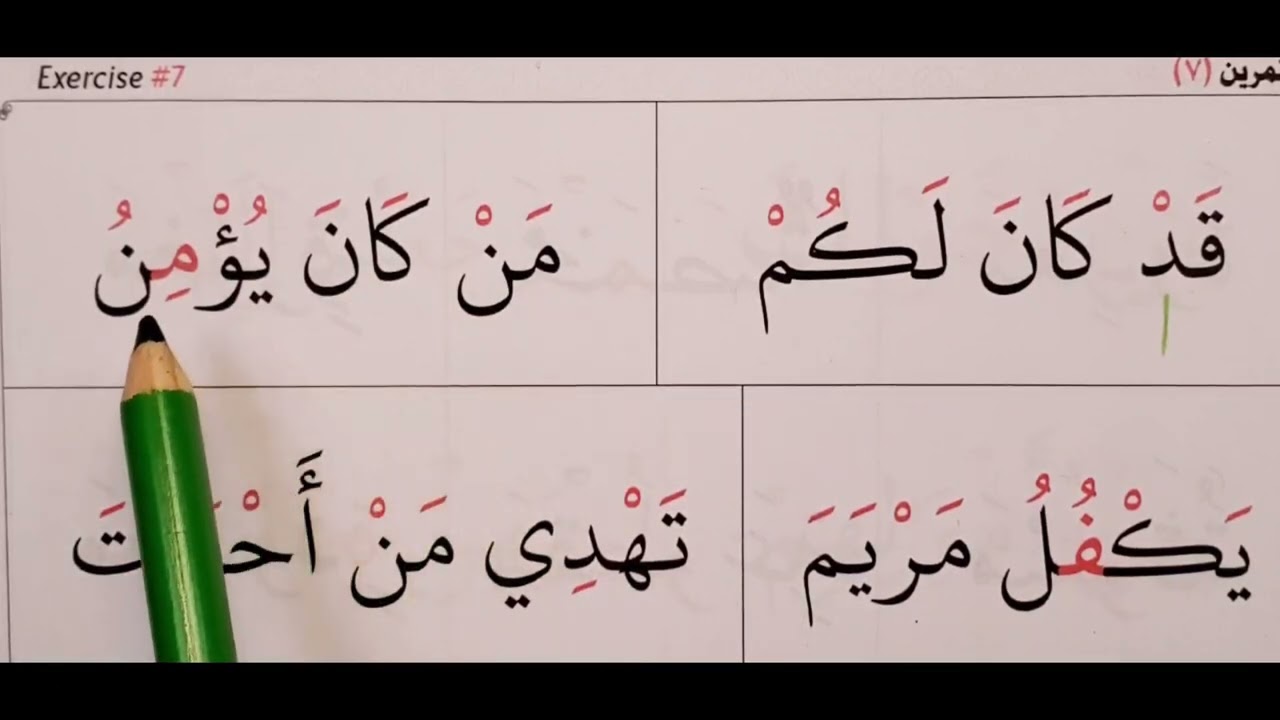 Exercise #7
تمرين (٧)
قَدْ كَانَ لَكُمْ
مَنْ كَانَ يُؤْمِنُ
يَكْفُلُ مَرْيَمَ
تَهْدِي مَنْ